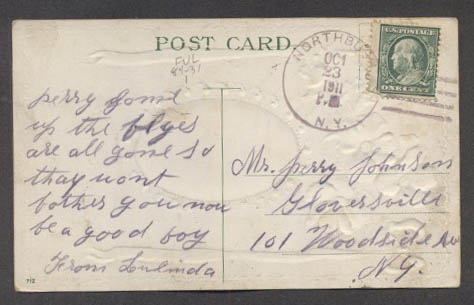 POST CARD.
FUL
84-31
1
NORTHBUSH
OCT
23
1911
P.M.
N.Y.
U.S. POSTAGE
ONE CENT
perry Come
up the flyes
are all gone so
thay wont
bother you now
be a good boy
From Lulinda
Mr. Perry Johnson
Gloversville
101 Woodside Av
N.Y.
712